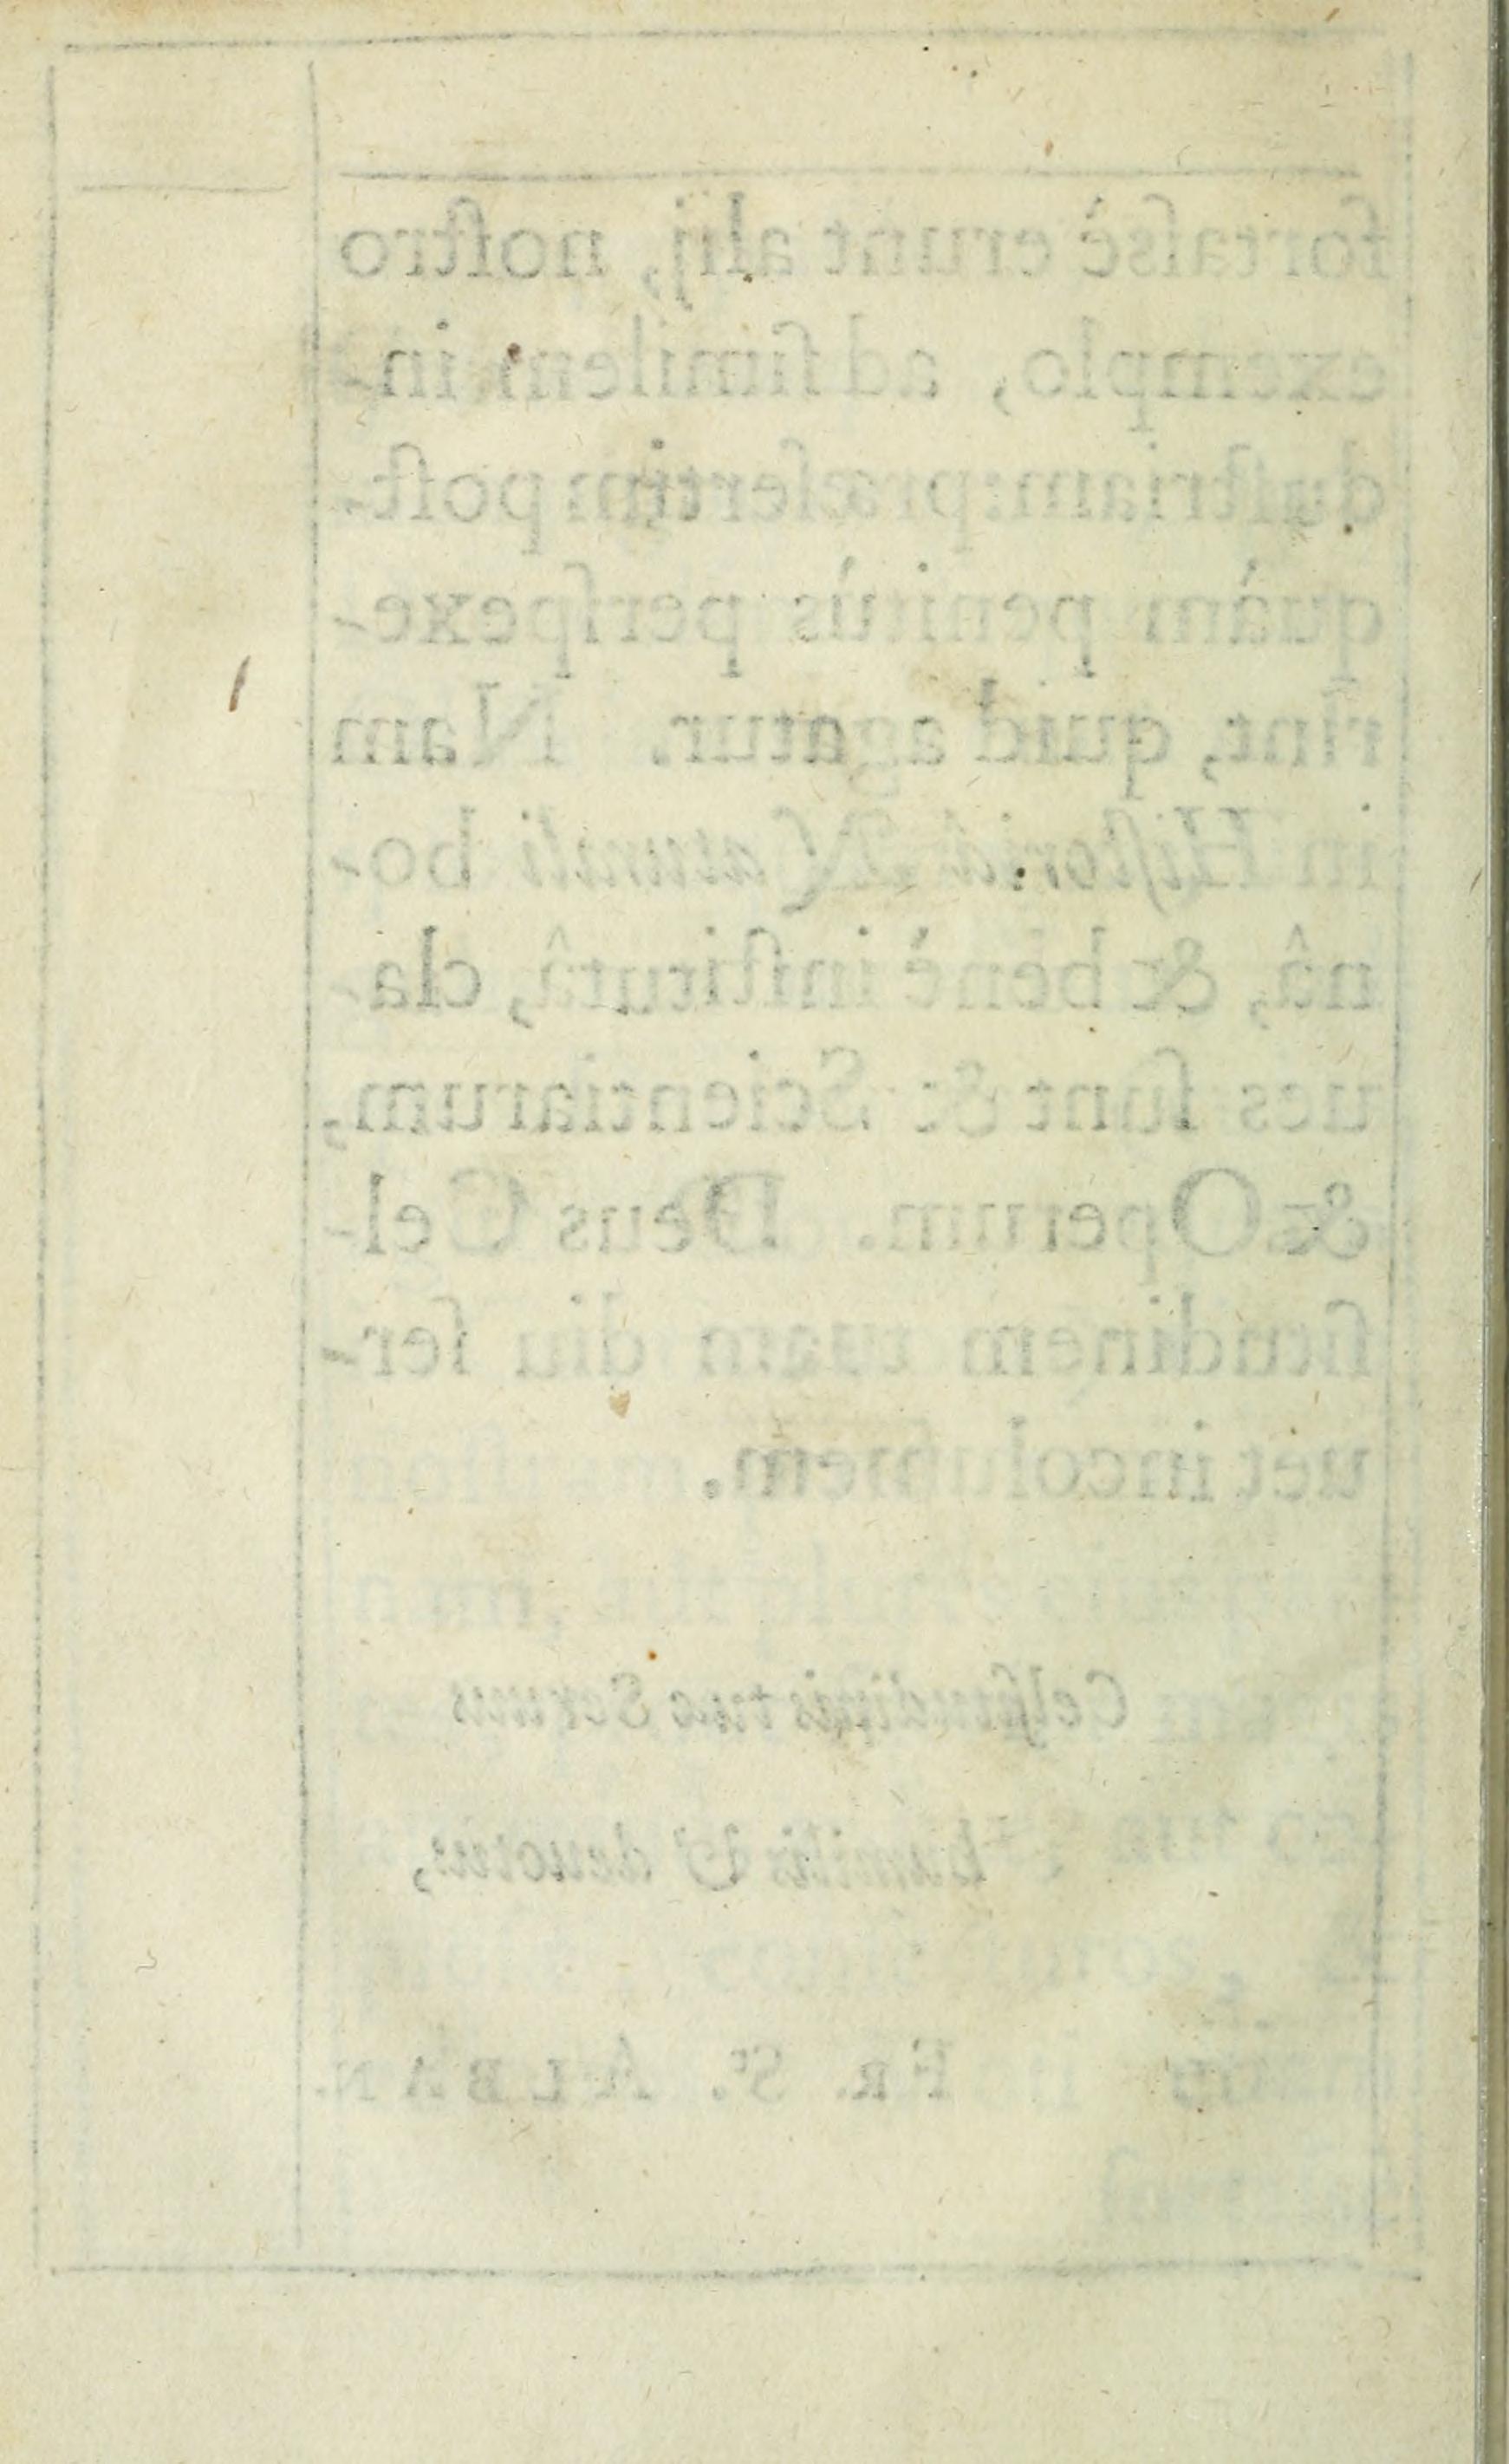 fortaſsè erunt alij, noſtro
exemplo, ad ſimilem in-
duſtriam: præſertim poſt-
quàm penitùs perſpexe-
rint, quid agatur. Nam
in Hiſtoriâ Naturali bo-
nâ, & benè inſtitutâ, cla-
ues ſunt & Scientiarum,
& Operum. Deus Cel-
ſitudinem tuam diu ſer-
uet incolumem.
Celſitudinis tuæ Seruus
humilis & deuotus,
FR. Sᵗ. ALBAN.